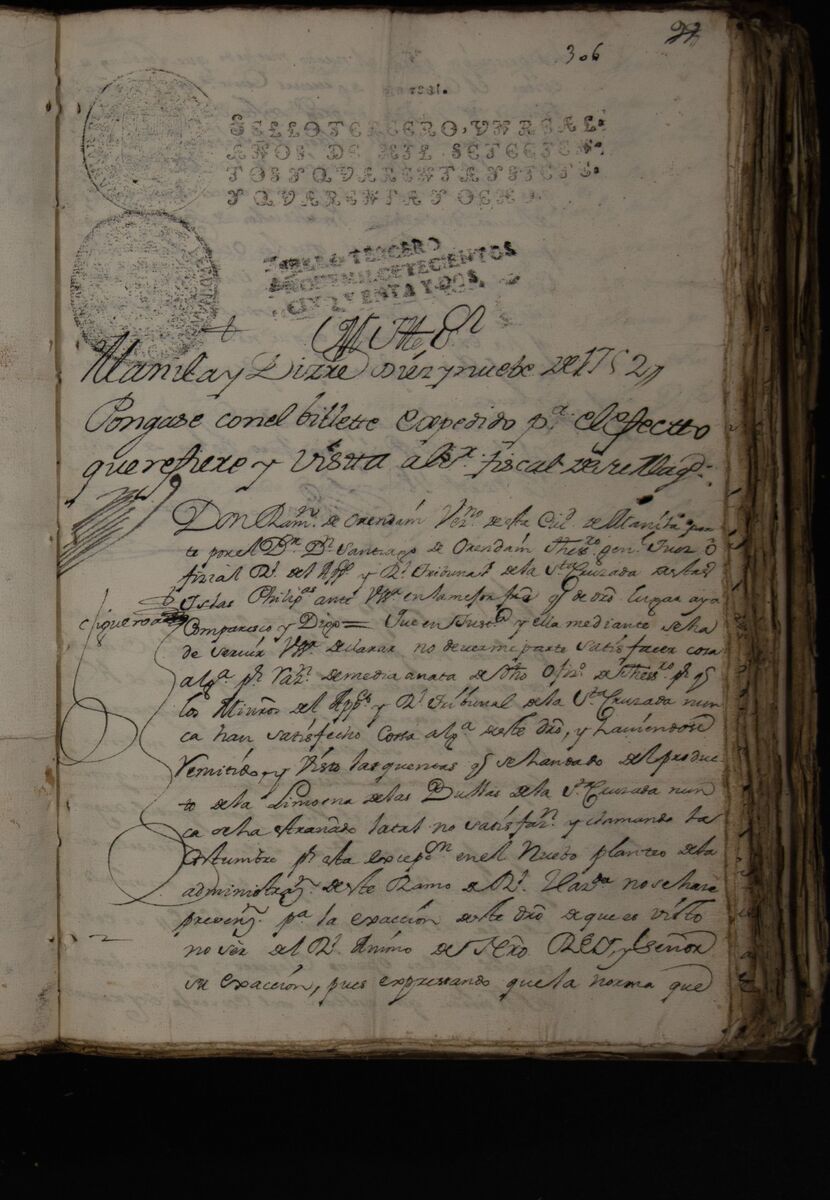 22
306
SELLO TERCERO, VN REAL.
AÑOS DE MIL SETECIEN-
TOS Y QVARENTA Y SIETE.
Y QVARENTA Y OCHO.
SELLO TERCERO
AÑO DE MIL SETECIENTOS
CINQVENTA Y DOS,
Manila y Dizre diez y nuebe de 1752
Pongase con el billette expedido pa. el efectto
que refiere y vistta al sr. fiscal de su Magd.
Don Ramn. de Orendain Vezno. de esta Ciud. de Manila par
te por el Dr. Dn. Santiago de Orendain Thesro. genl. Juez o
fizial Rl. del Appco. y Rl. Tribunal de la Sta. Cruzada de estas
Islas Philipas ante Vssa en la mejor forma q de dro lugar aya
Comparesco y Digo = Que en Justa. y ella mediante se ha
de servir Vssa. declarar no dever mi parte satisfacer cosa
alga. pr. razn. de media anata de dho Ofizo. de Thesro. pr. q
los Minros del Appco. y Rl. Tribunal de la Sta. Cruzada nun
ca han satisfecho cosa alga. de este dro, y haviendose
remitido, y visto las quentas q se han dado del produc
to de la Limosna de las Bullas de la Sta. Cruzada nun
ca se ha estrañado la tal no satisfazn. y clamando la
costumbre pr. esta excepon. en el Nuebo planteo de la
administrazn. de este Ramo de Rl. Hazda no se hace
prevenzn. pa. la exacción de este dro de que es visto
no ser del Rl. Animo de Nero REY, y Señor
su exacción, pues expressando que la norma que
Figueroa